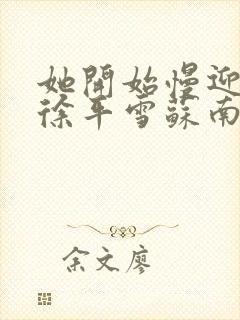 她開始慢迎
徐平雪蘇南
余文廖